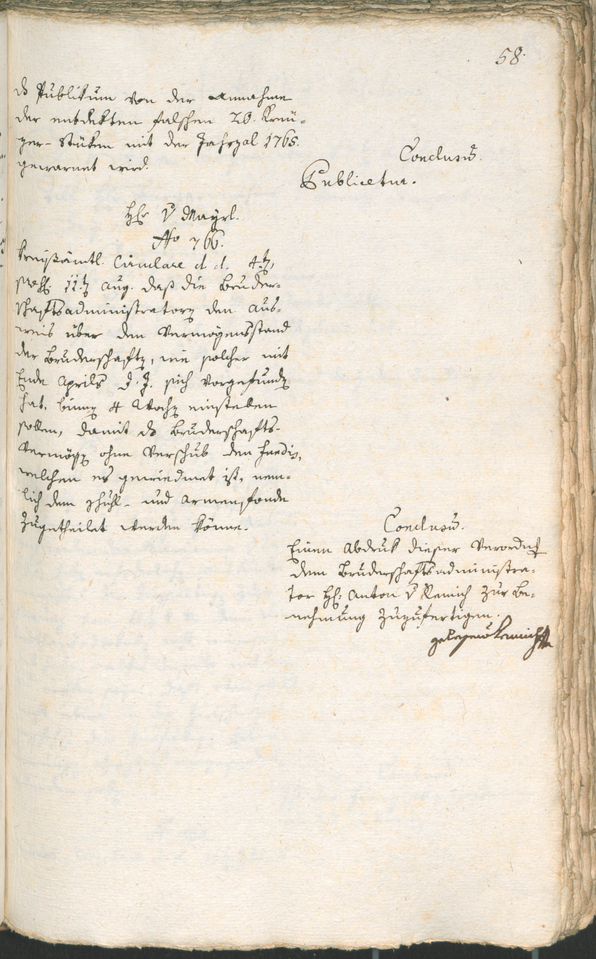 58.
ds Publikum von der Annahme
der entdekten falschen 20. Kreu-
zer-Stüken mit der Jahrzal 1765.
gewarnet wird.
Conclusũ.
Publicetur.
H. v Mayrl.
No 766.
Kreisämtl. Circulare d. d. 4.t,
11.t Aug. daß die Bruder-
schaftsadministratorn den Aus-
weis über den Vermögensstand
der Bruderschaftn, wie solcher mit
Ende Aprils d. J. sich vorgefundn
hat, binnen 4 Wochn einsteben
sollen, damit ds Bruderschafts-
Vermögn ohne Verschub den Fundis,
welchen es gewiedmet ist, nem-
lich dem Schul- und Armenfonde
zugetheilet werden könne.
Conclusũ.
Einen Abdruk dieser Verordnung
dem Bruderschaftsadministra-
tor H. Anton v Remich zur Be-
nehmung zuzufertigen.
gelesen Remich